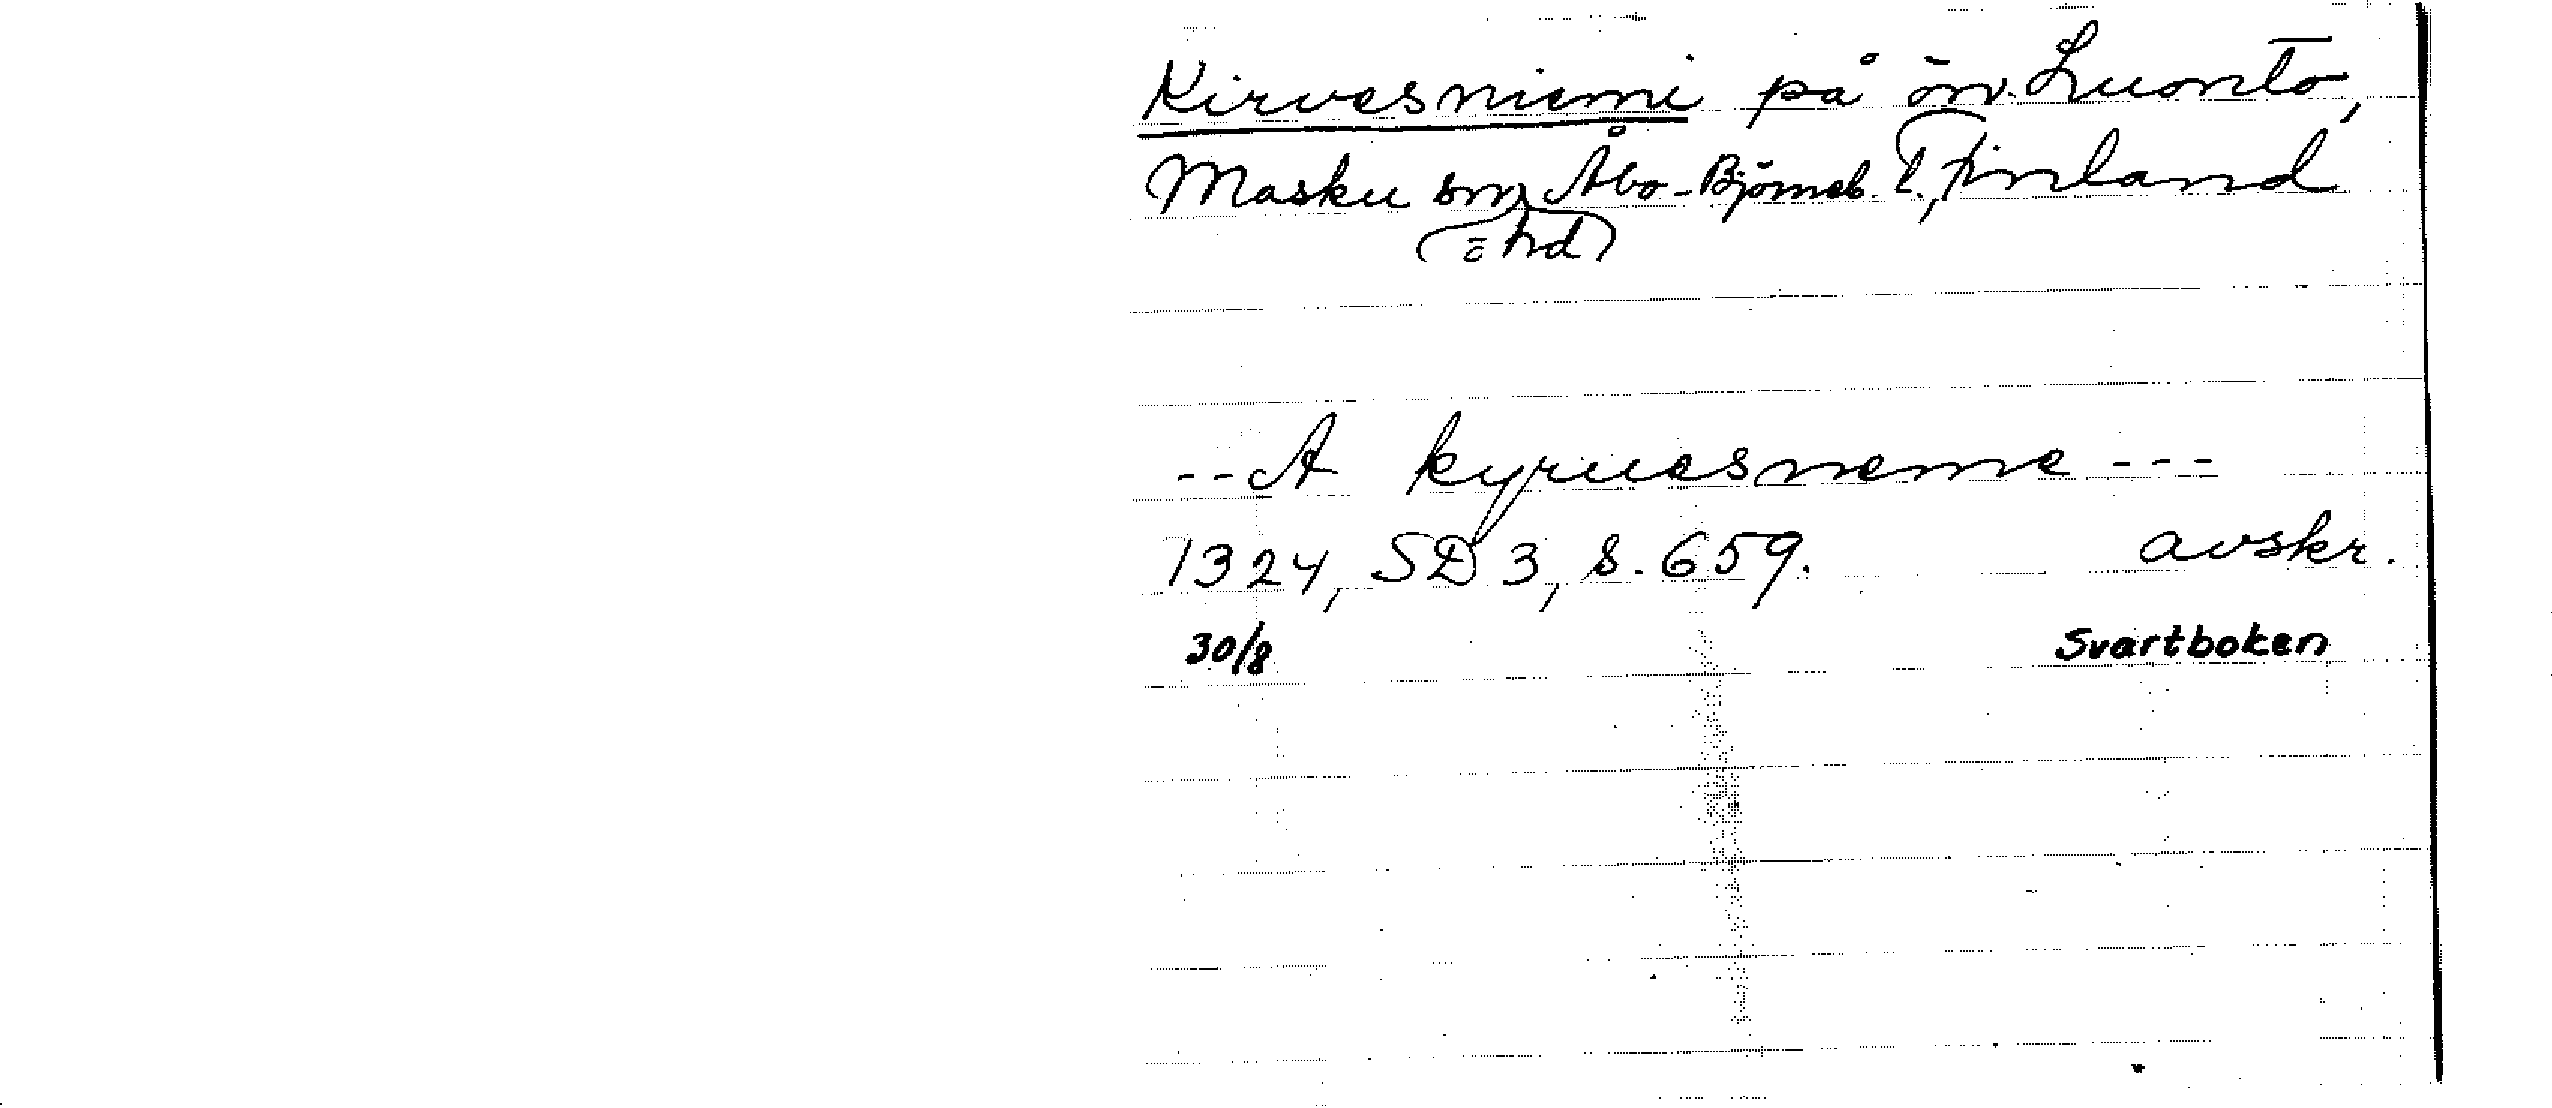 Kirvesniemi på ön Luonto,
Masku sn, Åbo-Björneb. l., Finland
(= hd)
-- A kyruesneme ---
1324, SD 3, s. 659. avskr.
30/8 Svartboken